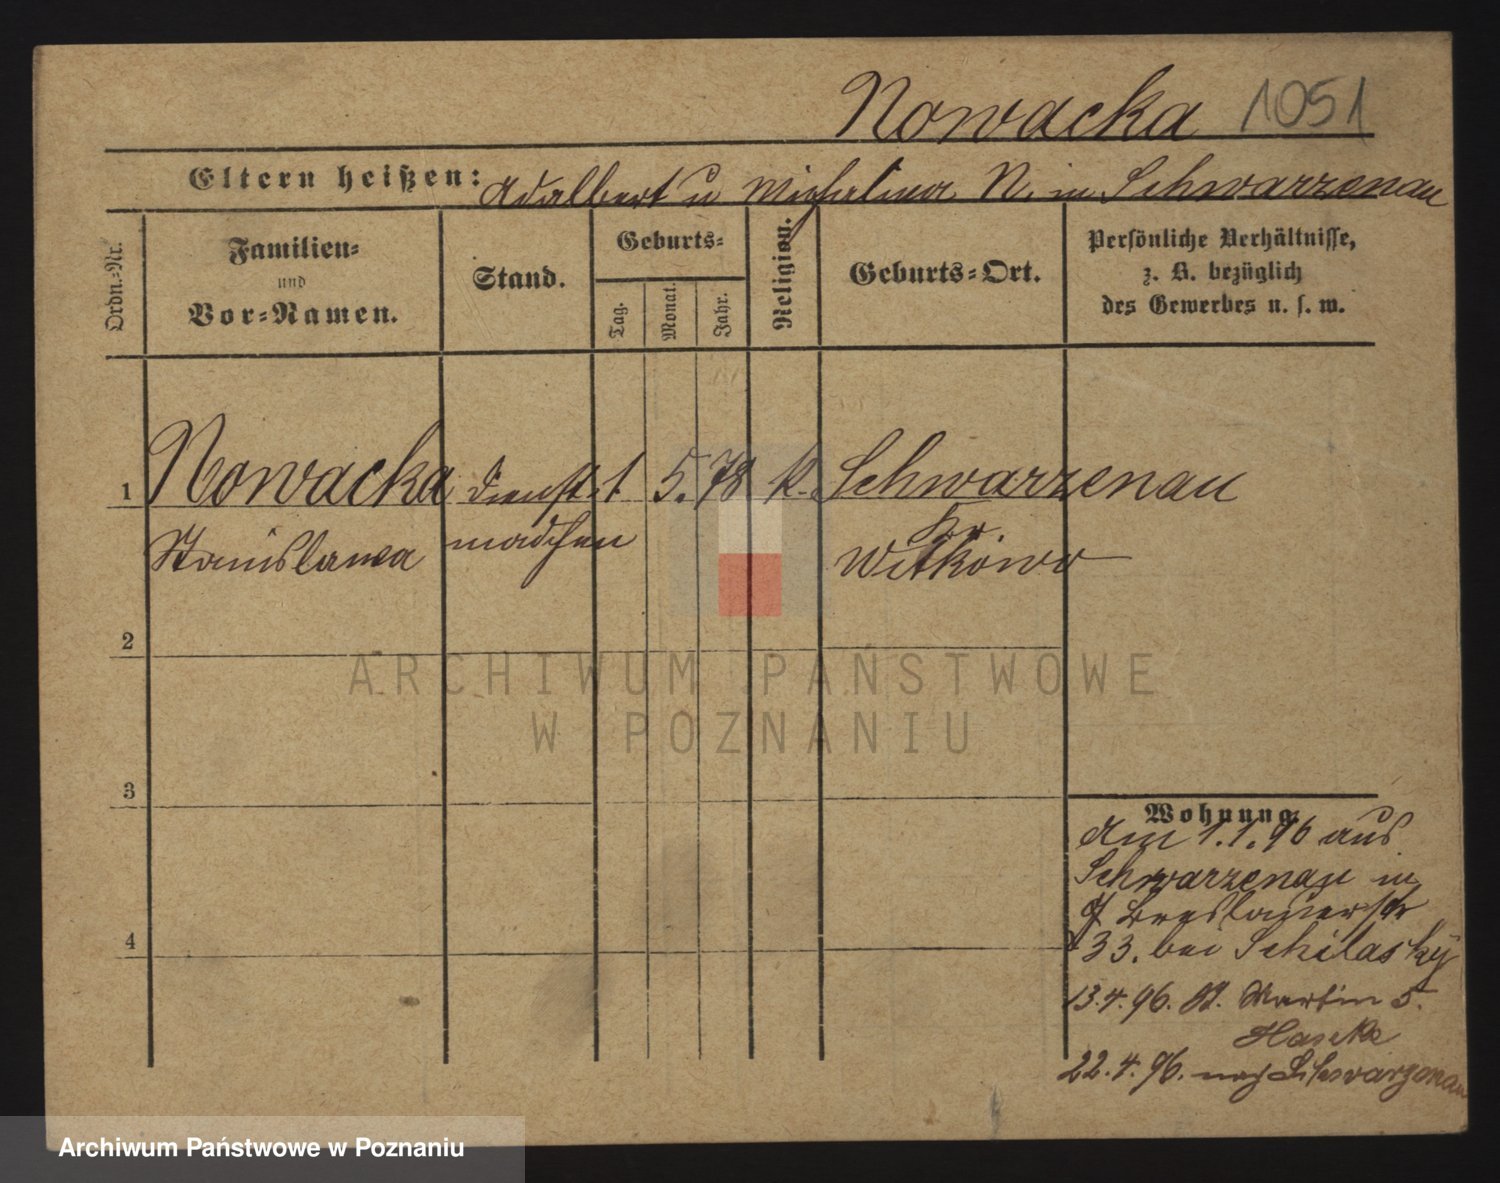 Nowacka 1051
Eltern heißen: Adalbert u Michalina N. in Schwarzenau
Ordn.=Nr.
Familien=
und
Vor=Namen.
Stand.
Geburts=
Tag.
Monat.
Jahr.
Religion.
Geburts=Ort.
Persönliche Verhältnisse,
z. B. bezüglich
des Gewerbes u. s. w.
1 Nowacka Dienst 1. 5. 78 k. Schwarzenau
Stanislawa mädchen Kr.
Witkowo
2
3
4
Wohnung.
Am 1.1.96 aus
Schwarzenau in
Breslauerstr
33. bei Schilasky
13.4.96. St. Martin 5.
22.4.96. nach Schwarzenau
ARCHIWUM PAŃSTWOWE
W POZNANIU
Archiwum Państwowe w Poznaniu